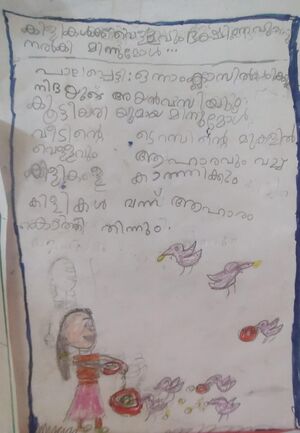 കിളികൾക്ക് വെള്ളവും ഭക്ഷണവും
നൽകി മിന്നുമോൾ...
പാലപ്പെട്ടി: ഒന്നാംക്ലാസിൽ
നിദയുടെ അയൽവാസിയും
കൂട്ടുകാരിയുമായ മിന്നുമോൾ
വീടിന്റെ ടെറസിന്റെ മുകളിൽ
വെള്ളവും ആഹാരവും വച്ച്
കിളികളെ കാത്തിരിക്കും
കിളികൾ വന്ന് ആഹാരം
കൊത്തി തിന്നും.